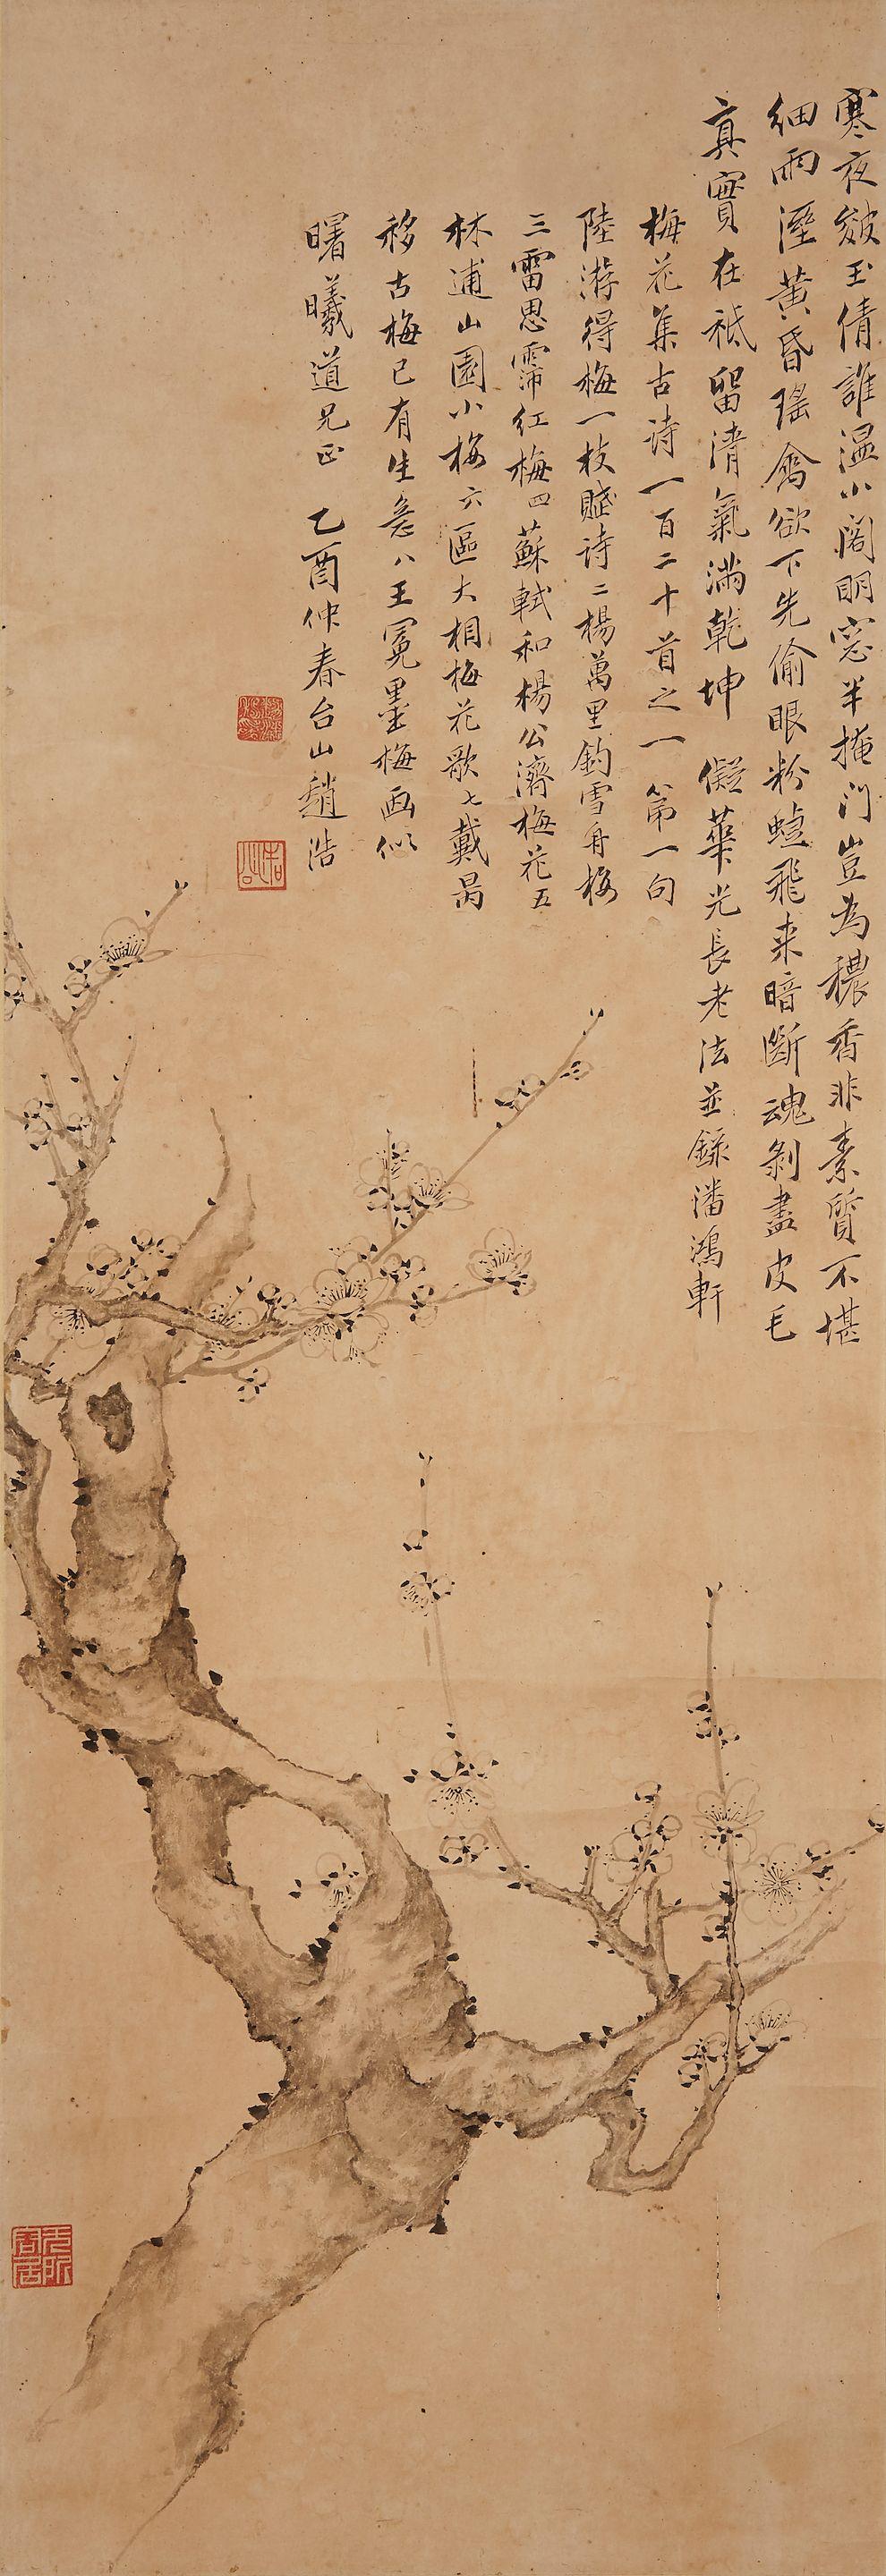 寒夜皴玉倩誰溫小閣明窓半掩門豈為穠香非素質不堪
細雨溼黃昏瑤禽欲下先偷眼粉蝶飛來暗斷魂剝盡皮毛
真實在祗留清氣滿乾坤 儗華光長老法並錄潘鴻軒
梅花集古詩一百二十首之一 第一句
陸游得梅一枝賦詩二楊萬里釣雪舟梅
三雷思霈紅梅四蘇軾和楊公濟梅花五
林逋山園小梅六區大相梅花歌七戴昺
移古梅已有生意八王冕墨梅画似
曙曦道兄正 乙酉仲春台山趙浩